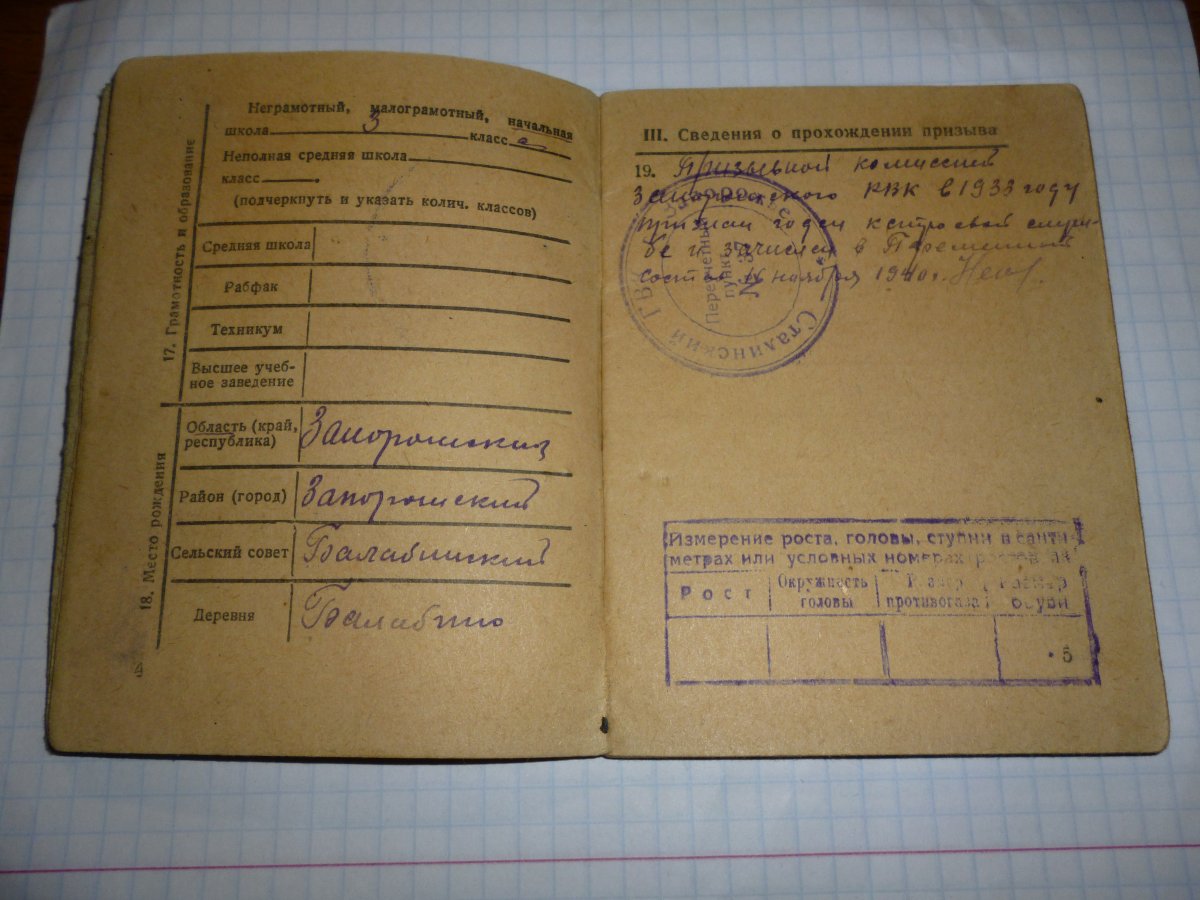 17. Грамотность и образование
Неграмотный, малограмотный, начальная
школа 3 класс а
Неполная средняя школа
класс .
(подчеркнуть и указать колич. классов)
Средняя школа
Рабфак
Техникум
Высшее учеб-
ное заведение
18. Место рождения
Область (край, Запорожский
республика)
Район (город) Запорожский
Сельский совет Балабинский
Деревня Балабино
III. Сведения о прохождении призыва
19. Призывной комиссией
Запорожского РВК в 1933 году
признан годен к строевой служ-
бе и зачислен в Переменный
состав 14 ноября 1940г.
Сталинский ГВК
Пересчетный
пункт
№ 37
Измерение роста, головы, ступни в санти-
метрах или условных номерах
Рост
Окружность
головы
Размер
противогаза
Размер
обуви
5